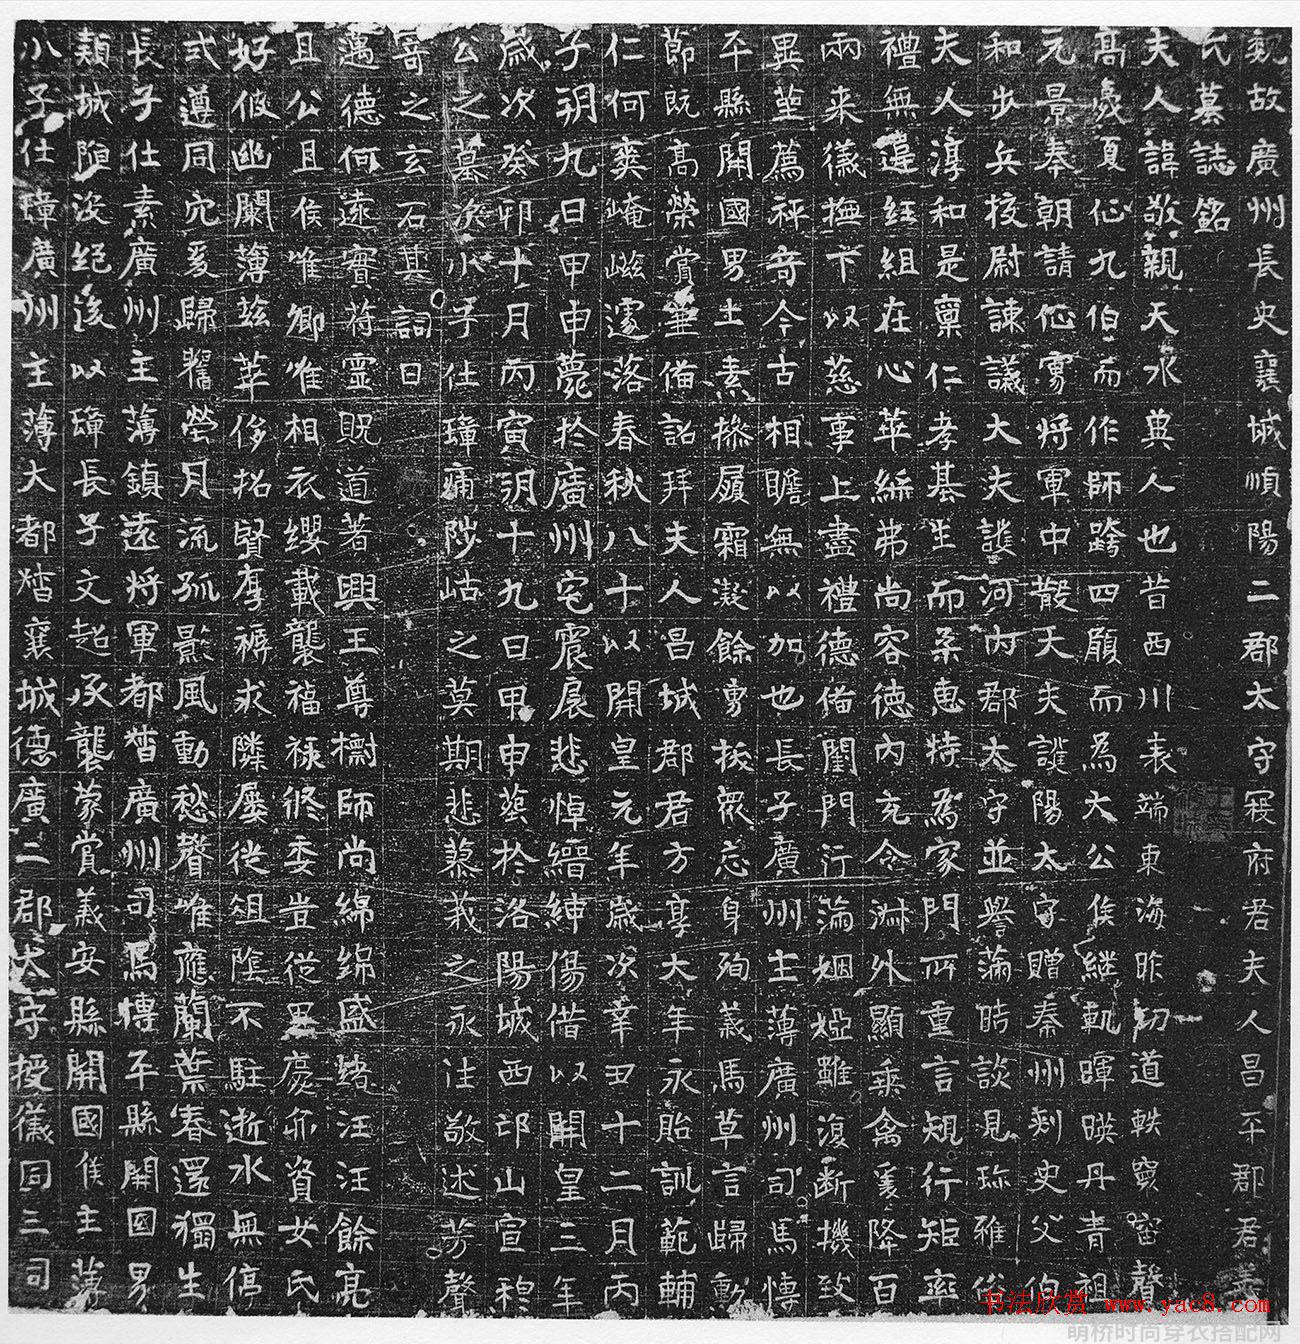 魏故廣州長史襄城順陽二郡太守寇府君夫人昌平郡君姜
氏墓誌銘
夫人諱敬親天水冀人也昔西川表端東海昨初道軼窮宙聲
高歲夏征九伯而作師跨四願而為大公侯繼軌暉暎丹青祖
元景奉朝請征虜將軍中散大夫譙陽太守贈秦州刺史父伯
和步兵挍尉諫議大夫譙河內郡太守並譽滿時談見珎雅俗
夫人淳和是稟仁孝基生而柔惠特為家門所重言規行矩率
禮無違紝組在心華絺弗尚容德內充令淋外顯乘禽爰降百
兩来儀撫下以慈事上盡禮德俻閨門行滿姻婭雖復断機致
異莝薦稱竒今古相瞻無以加也長子廣州主薄廣州司馬慱
平縣開國男士素操履霜凝餘勇挍眾忘身殉義馬革言歸勳
節既高榮賞莝俻詔拜夫人昌城郡君方享大年永貽訓範輔
仁何爽崦嵫遽落春秋八十以開皇元年歲次辛丑十二月丙
子朔九日甲申薨於廣州宅宸扆悲悼縉紳傷借以開皇三年
歲次癸卯十月丙寅朔十九日甲申葬於洛陽城西邙山宣穆
公之墓次小子仕璋痛陟岵之莫期悲蓼莪之永往敬述芳聲
寄之玄石其詞曰
邁德何遠實荷靈貺道著興王尊師尚綿綿盛緒汪汪餘亮
且公且侯唯卿唯相衣纓載襲福祿終委豈從畢慶亦資女氏
好仇幽闌薄茲華侈招賢厚褥求隣屢徙俎陰不駐逝水無停
式遵同穴爰歸舊塋月流孤影風動愁聲唯應蘭葉春還獨生
長子仕素廣州主薄鎮遠將軍都督廣州司馬慱平縣開國男
頛城陷沒絕後以璋長子文超承襲蒙賞義安縣開國侯主薄
小子仕璋廣州主薄大都督襄城德廣二郡太守授儀同三司
书法欣赏 www.yac8.com
萌桥时尚穿衣搭配网